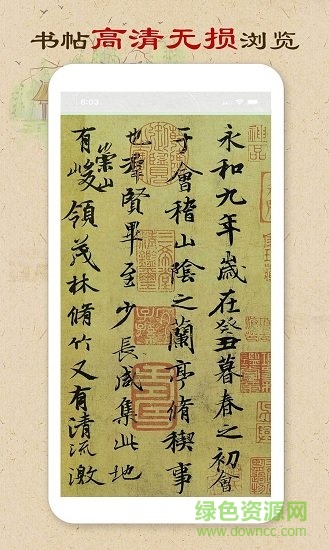 书帖高清无损浏览
6:03
永和九年歲在癸丑暮春之初會
于會稽山陰之蘭亭脩稧事
也羣賢畢至少長咸集此地
有崇山峻領茂林脩竹又有清流激
神品
绿色资源网
www.downcc.com